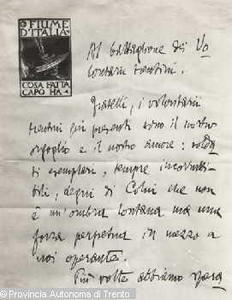 FIUME
D'ITALIA
COSA FATTA
CAPO HA
Al battaglione dei Vo
lontari trentini.
Fratelli, i volontarii
trentini qui presenti sono il nostro
orgoglio e il nostro amore: solda
ti esemplari, tempre incorrutti
bili, degni di Colui che non
è un'ombra lontana ma una
forza perpetua in mezzo a
noi operante.
Più volte abbiamo
© Provincia Autonoma di Trento